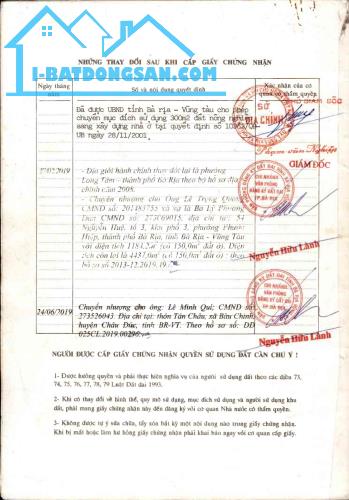 I-BATDONGSAN.COM
NHỮNG THAY ĐỔI SAU KHI CẤP GIẤY CHỨNG NHẬN
Ngày tháng năm
Số và nội dung quyết định
Xác nhận của cơ quan có thẩm quyền
Đã được UBND tỉnh Bà Rịa - Vũng Tàu cho phép
chuyển mục đích sử dụng 300m2 đất nông nghiệp
sang xây dựng nhà ở tại quyết định số
UB ngày 28/11/2001
SỞ
ĐỊA CHÍNH
Phạm văn Nghiệp
GIÁM ĐỐC
/2019
- Địa giới hành chính thay đổi lại là phường
Long Tâm - thành phố Bà Rịa theo bộ hồ sơ địa
chính năm 2008.
- Chuyển nhượng cho Ông Lê Trọng
CMND số: và vợ là Bà Lê
CMND số: địa chỉ tại: 54
Nguyễn Huệ, tổ 3, khu phố 3, phường Phước
Hiệp, thành phố Bà Rịa, tỉnh Bà Rịa - Vũng Tàu
với diện tích 1183,2m² (có 150,0m² đất ở). Diện
tích còn lại là (có 150,0m² đất ở) theo
hồ sơ số 2013-12.2019.
CHI NHÁNH
VĂN PHÒNG
ĐĂNG KÝ ĐẤT ĐAI
TP.BÀ RỊA
Nguyễn Hữu Lãnh
24/06/2019
Chuyển nhượng cho ông: Lê Minh Quí; CMND số:
273526043. Địa chỉ tại: thôn Tân Châu, xã Bàu Chinh,
huyện Châu Đức, tỉnh BR-VT. Theo hồ sơ số: DD
025CL.2019.
CHI NHÁNH
VĂN PHÒNG
ĐĂNG KÝ ĐẤT ĐAI
TP.BÀ RỊA
Nguyễn Hữu Lãnh
NGƯỜI ĐƯỢC CẤP GIẤY CHỨNG NHẬN QUYỀN SỬ DỤNG ĐẤT CẦN CHÚ Ý !
1- Được hưởng quyền và phải thực hiện nghĩa vụ của người sử dụng đất theo các điều 73,
74, 75, 76, 77, 78, 79 Luật Đất đai 1993.
2- Khi có thay đổi về hình thể, quy mô sử dụng, mục đích sử dụng và người sử dụng khu
đất, phải mang giấy chứng nhận này đến đăng ký với cơ quan Nhà nước có thẩm quyền.
3- Không được tự ý sửa chữa, tẩy xóa bất kỳ một nội dung nào trong giấy chứng nhận.
Khi bị mất hoặc làm hư hỏng giấy chứng nhận phải khai báo ngay với cơ quan cấp giấy.